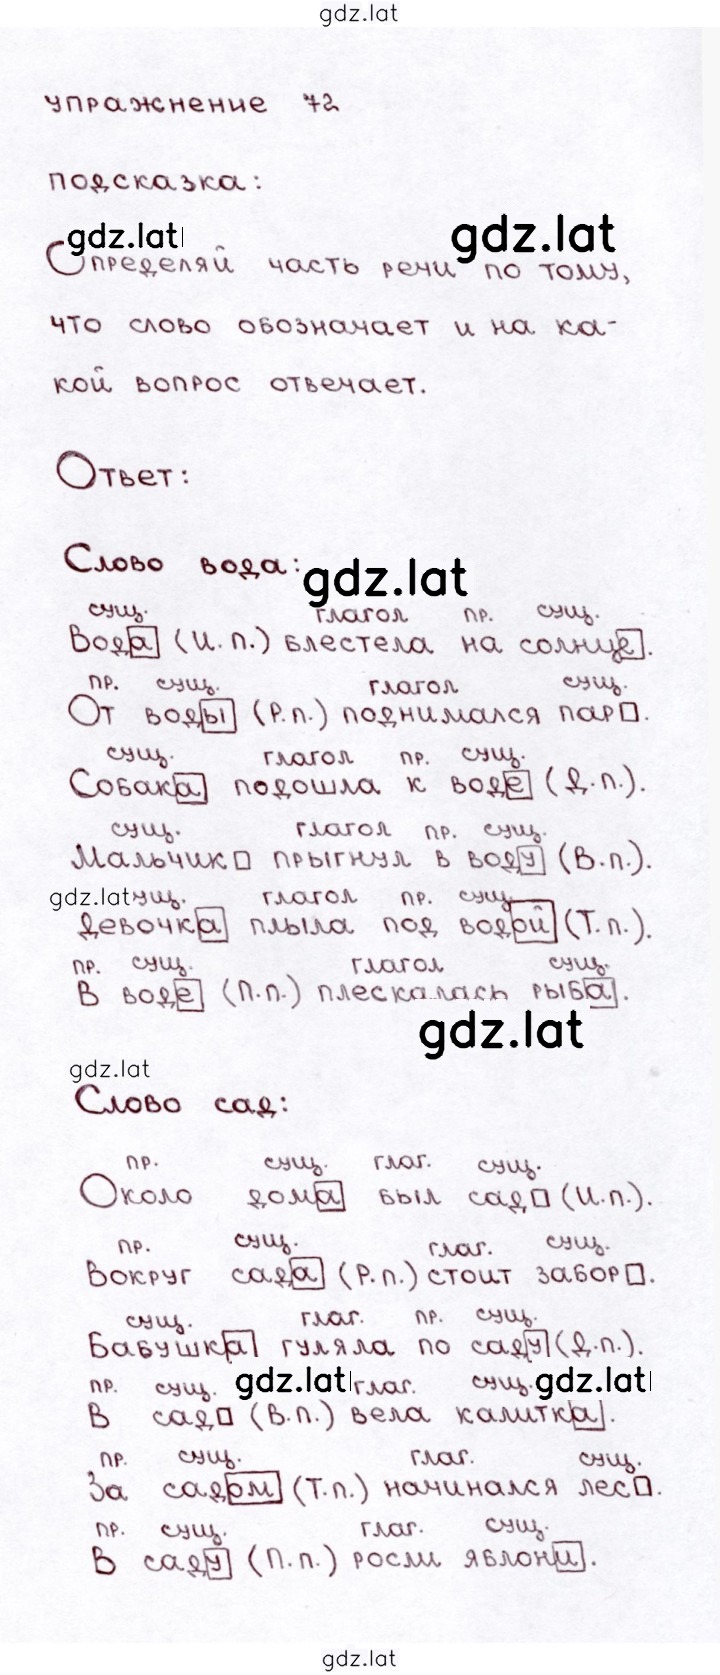 gdz.lat
упражнение 72
подсказка:
gdz.lat gdz.lat
Определяй часть речи по тому,
что слово обозначает и на ка-
кой вопрос отвечает.
Ответ:
Слово вода:
gdz.lat
сущ. глагол пр. сущ.
Вода (И.п.) блестела на солнце.
пр. сущ. глагол сущ.
От воды (Р.п.) поднимался пар□.
сущ. глагол пр. сущ.
Собака подошла к воде (Д.п.).
сущ. глагол пр. сущ.
Мальчик□ прыгнул в воду (В.п.).
gdz.lat сущ. глагол пр. сущ.
Девочка плыла под водой (Т.п.).
пр. сущ. глагол сущ.
В воде (П.п.) плескалась рыба.
gdz.lat
gdz.lat
Слово сад:
пр. сущ. глаг. сущ.
Около дома был сад□ (И.п.).
пр. сущ. глаг. сущ.
Вокруг сада (Р.п.) стоит забор□.
сущ. глаг. пр. сущ.
Бабушка гуляла по саду (Д.п.).
пр. сущ. gdz.lat глаг. сущ. gdz.lat
В сад□ (В.п.) вела калитка.
пр. сущ. глаг. сущ.
За садом (Т.п.) начинался лес□.
пр. сущ. глаг. сущ.
В саду (П.п.) росли яблони.
gdz.lat